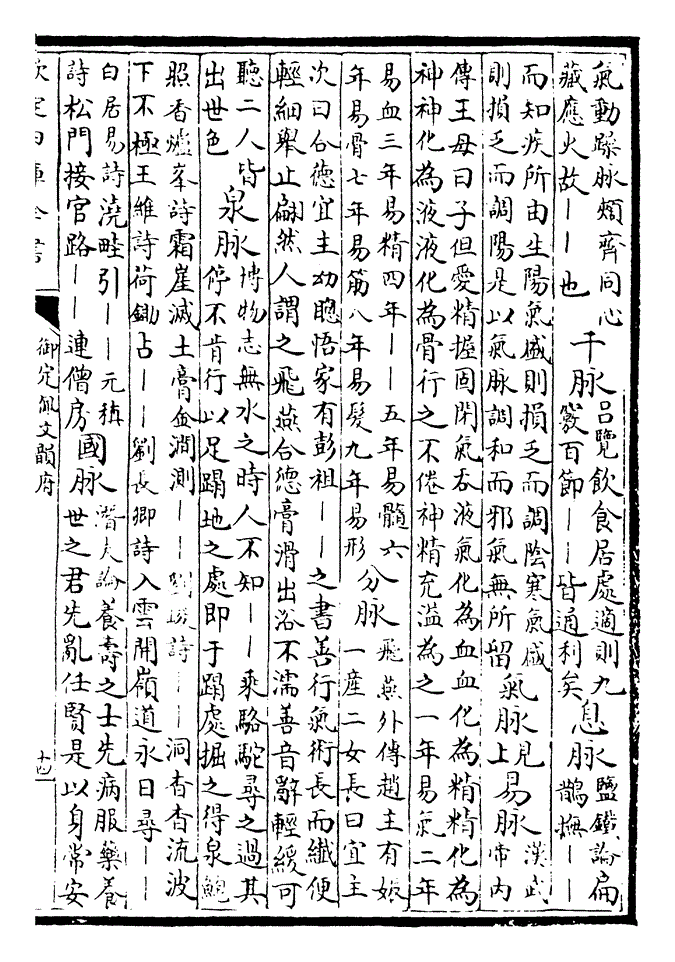 氣動躁脉煩齊同心
藏應火故——也
千脉
吕覽飲食居處適則九
竅百節——皆通利矣
息脉
鹽鐵論扁
鵲撫——
而知疾所由生陽氣盛則損乏而調陰寒氣盛
則損乏而調陽是以氣脉調和而邪氣無所留
氣脉
見
上
易脉
漢武
帝内
傳王母曰子但愛精握固閉氣吞液氣化為血血化為精精化為
神神化為液液化為骨行之不倦神精充溢為之一年易氣二年
易血三年易精四年——五年易髓六
年易骨七年易筋八年易髪九年易形
分脉
飛燕外傳趙主有娠
一産二女長曰宜主
次曰合德宜主幼聰悟家有彭祖——之書善行氣術長而纖便
輕細舉止翩然人謂之飛燕合德膏滑出浴不濡善音辭輕緩可
聽二人皆
出世色
泉脉
博物志無水之時人不知——乘駱駝尋之過其
停不肯行以足蹋地之處即于蹋處掘之得泉鮑
照香爐峯詩霜崖滅土膏金澗測——劉峻詩——洞杳杳流波
下不極王維詩荷鋤占——劉長卿詩入雲開嶺道永日尋——
白居易詩澆畦引——元稹
詩松門接官路——連僧房
國脉
潛夫論養壽之士先病服藥養
世之君先亂任賢是以身常安
欽定四庫全書
御定佩文韻府
十四